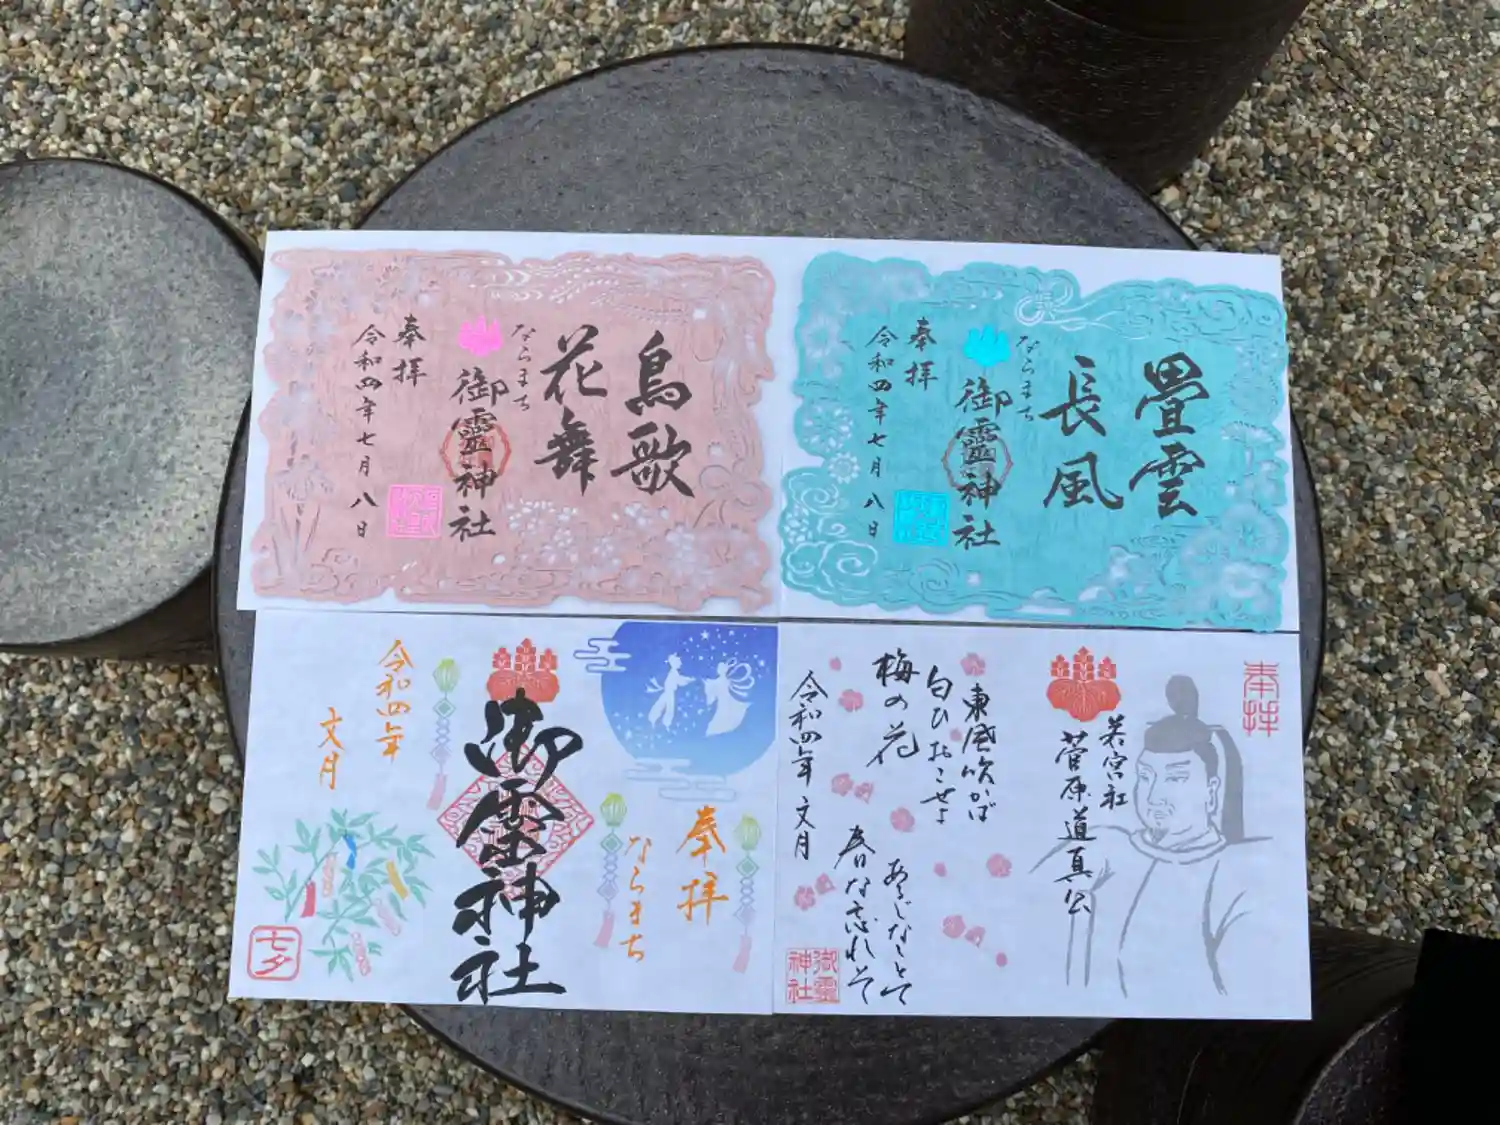 鳥歌
花舞
ならまち
御靈神社
奉拝
令和四年七月八日
畳雲
長風
ならまち
御靈神社
奉拝
令和四年七月八日
奉拝
ならまち
御霊神社
令和四年
文月
七夕
奉拝
若宮社
菅原道真公
東風吹かば
匂ひおこせよ
梅の花
あるじなしとて
春な忘れそ
令和四年文月
御霊
神社